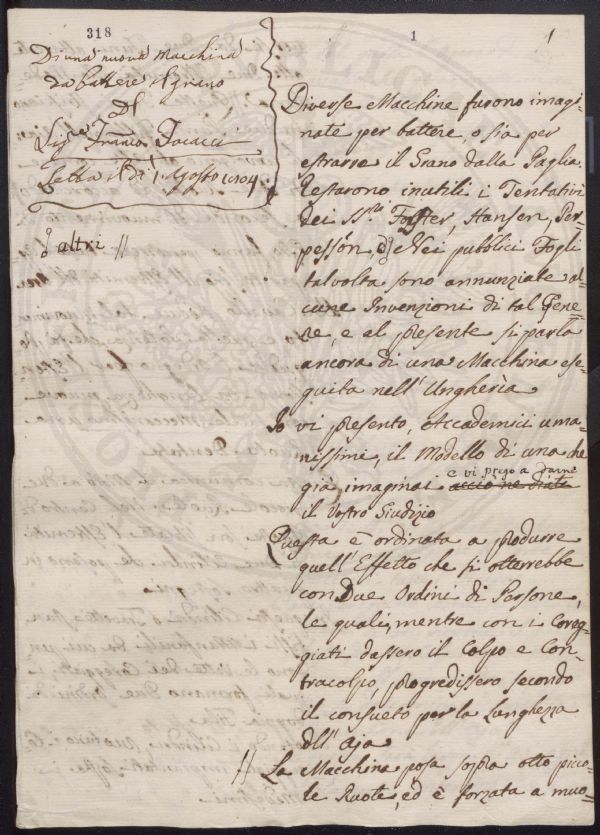 318
1
1
Di una nuova Macchina
da battere il grano
Del
Sig.r Franco Focacci
Letta il dì 1 Agosto 1804
Diverse Macchine furono imagi-
nate per battere, o sia per
estrarre il Grano dalla Paglia.
Restarono inutili i Tentativi
dei SSri Foester, Hansen, Per-
pessón, Nei pubblici Fogli
altri //
talvolta sono annunziate al-
cune Invenzioni di tal Gene-
re, e al presente si parla
ancora di una Macchina ese-
guita nell'Ungherìa
Io vi presento, Accademici uma-
nissimi, il Modello di una che
già imaginai acciò ne diate
e vi prego a darne
il Vostro Giudizio
Questa è ordinata a produrre
quell'Effetto che si otterrebbe
con Due Ordini di Persone,
le quali, mentre con i Coreg-
giati dassero il Colpo e Con-
tracolpo, progredissero secondo
il consueto per la Lunghezza
dll'Aja
// La Macchina posa sopra otto picco-
le Ruote, ed è forzata a muo-